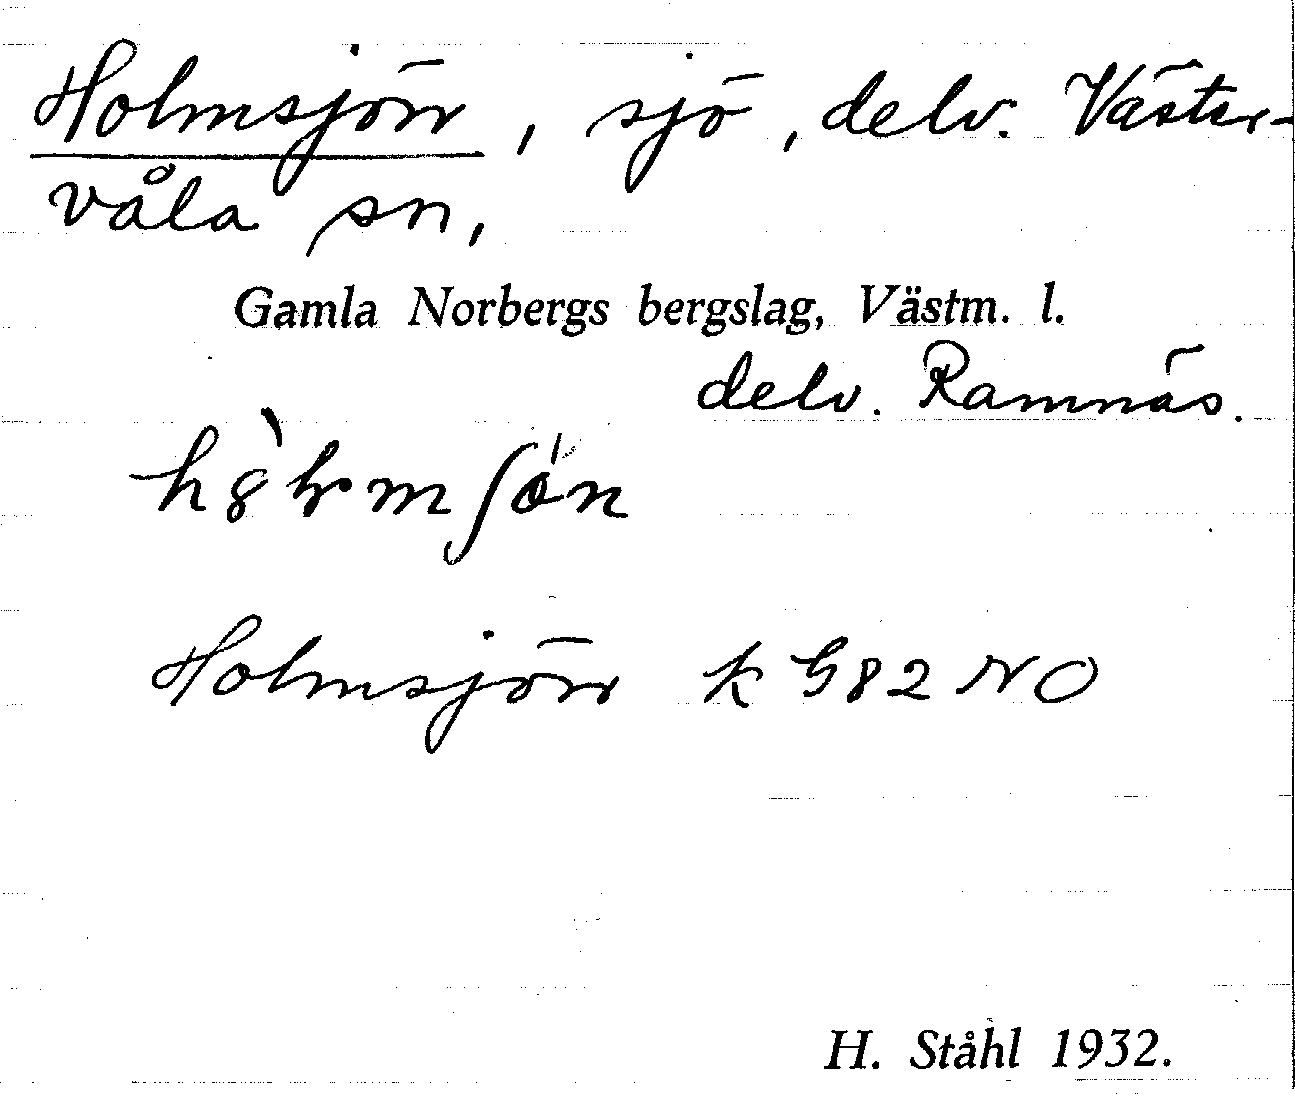 Holmsjön, sjö, delv. Väster-
våla sn,
Gamla Norbergs bergslag, Västm. l.
delv. Ramnäs.
Holmsjön k G82 NO
H. Ståhl 1932.